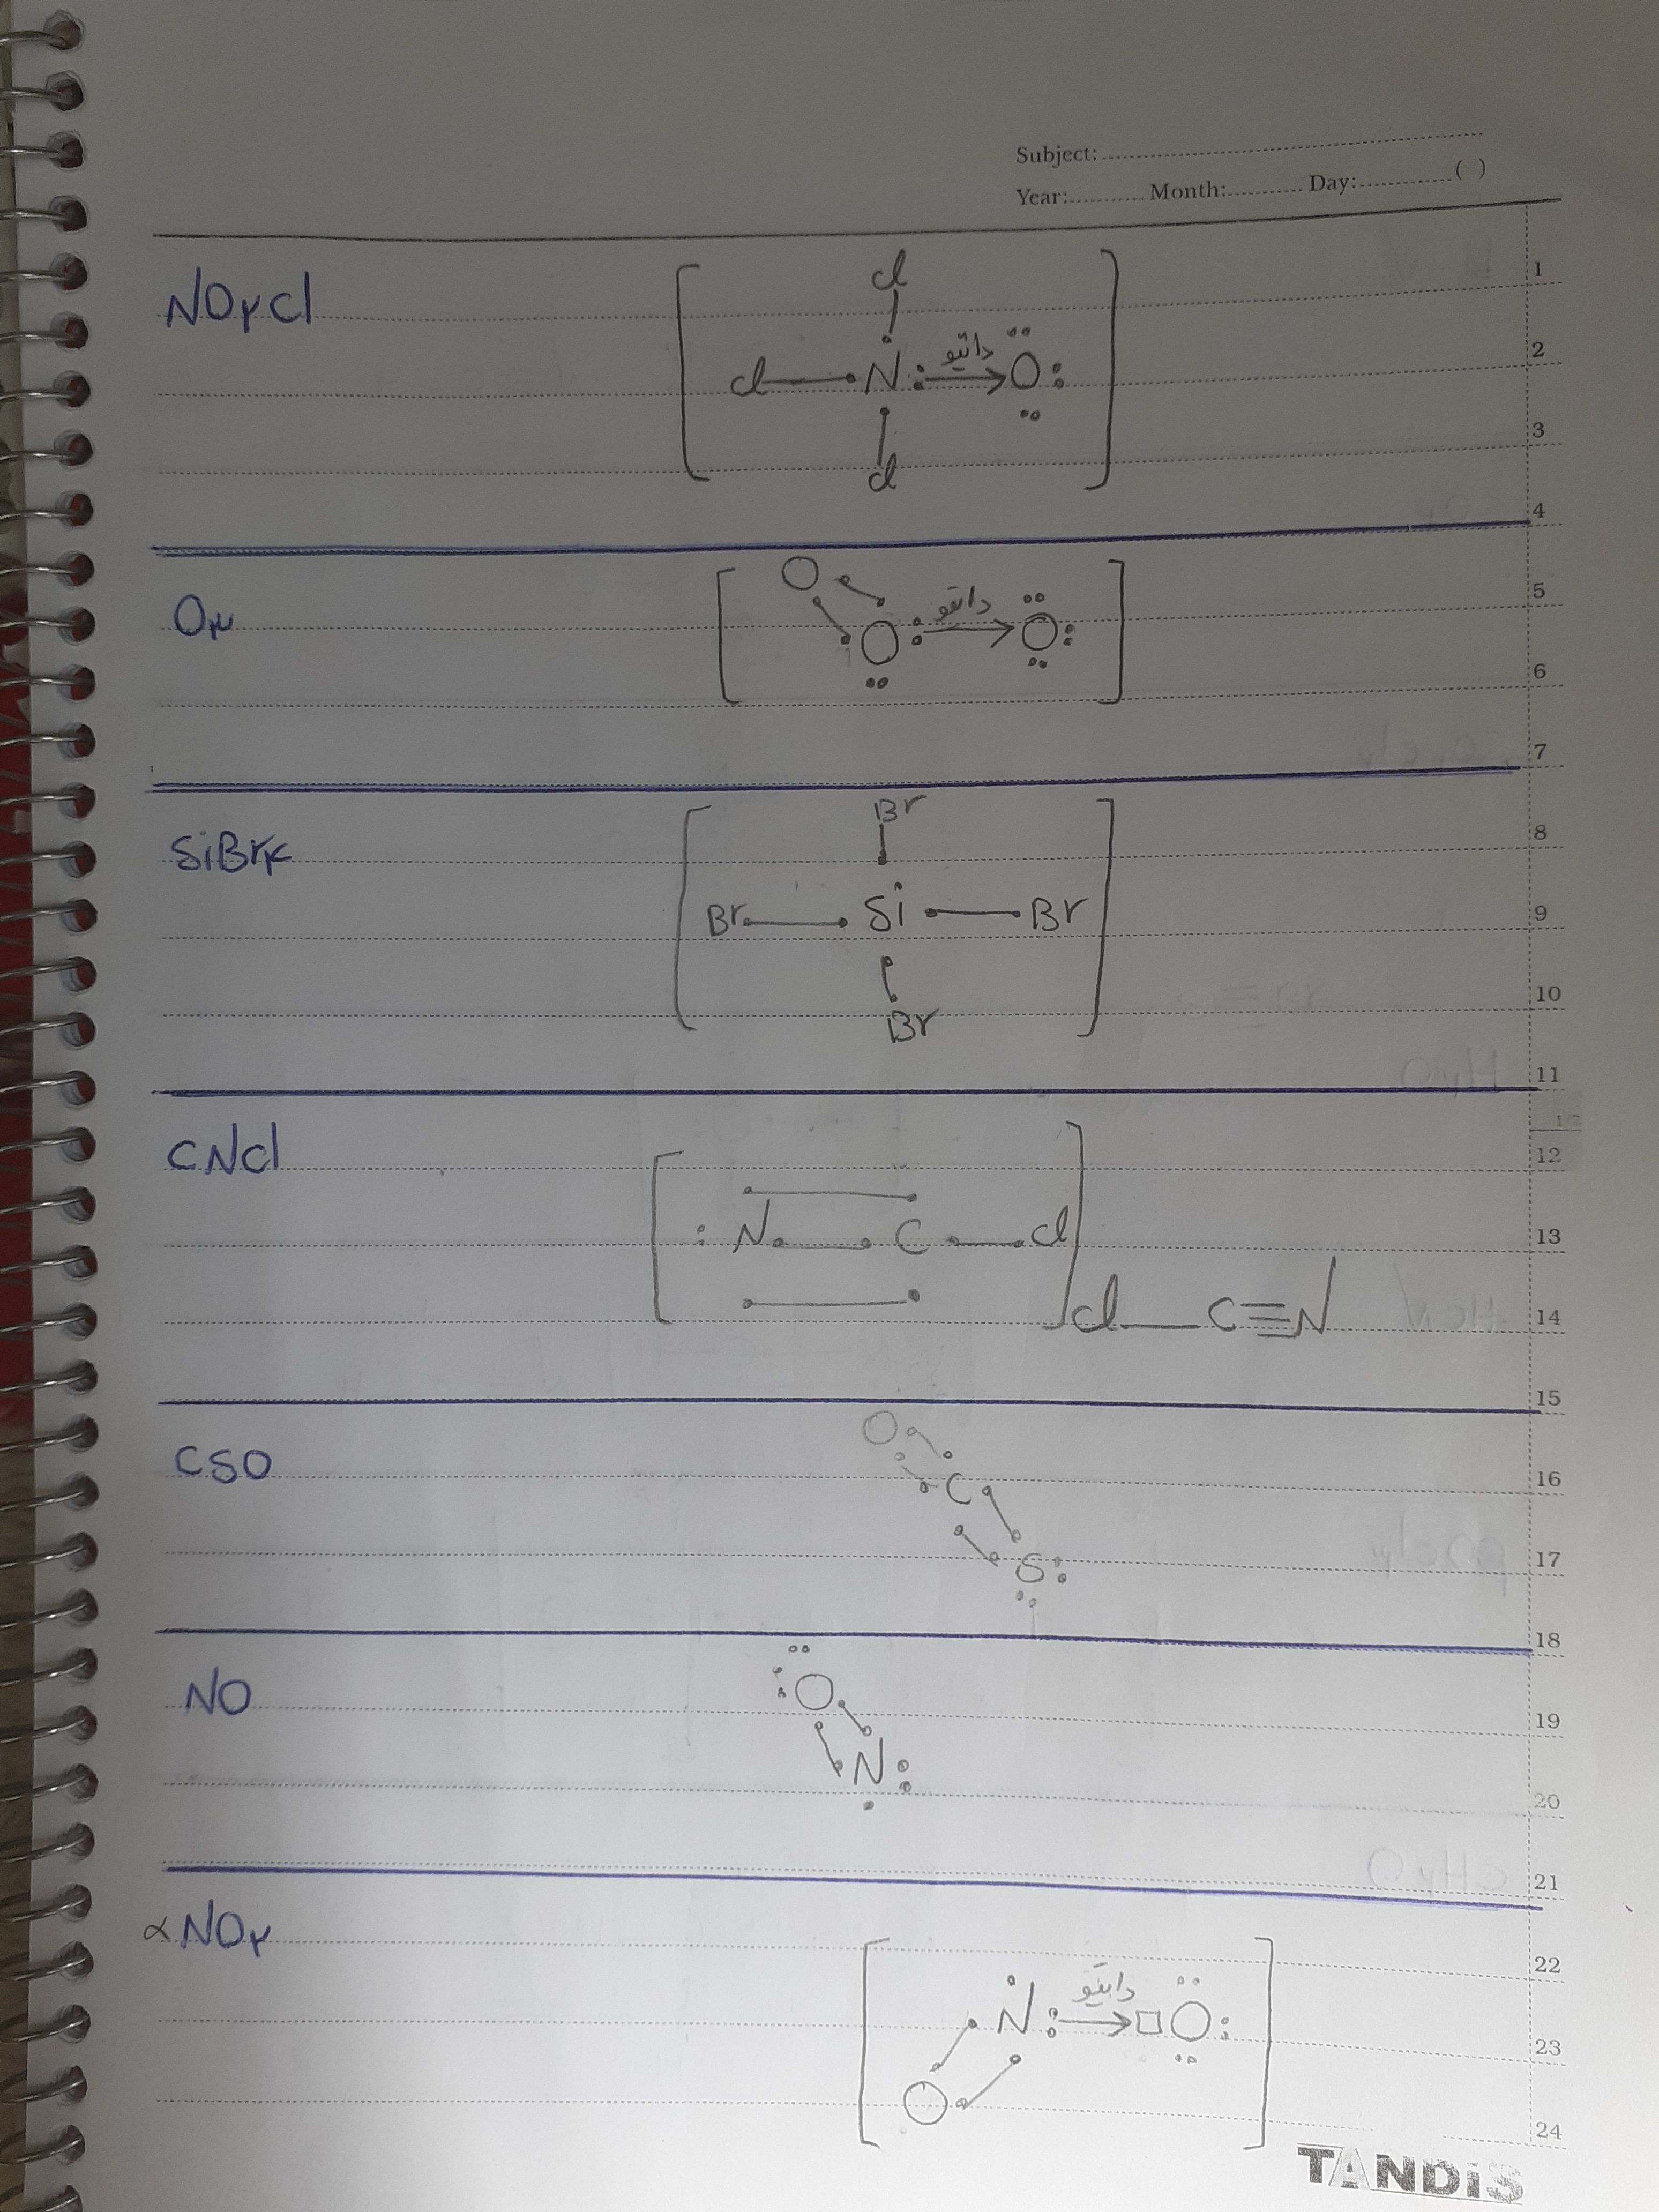 Subject:
Year: Month: Day: ( )
1
NO۲Cl
Cl
2
Cl N: داتیو O:
3
Cl
4
O
5
O۳
O: داتیو O:
6
7
Br
8
SiBr۴
9
Br Si Br
10
Br
11
CNCl
12
13
: N C Cl
14
Cl—C≡N
15
O
CSO
16
C
17
S:
18
NO
:O
19
N:
20
21
×NO۲
22
N: داتیو □O:
23
O
24
TANDIS